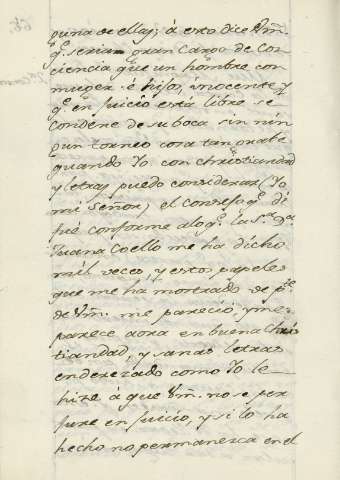 guna de ellas; á esto dice Vm.
q.e seria gran Cargo de Con
ciencia que un hombre con
muger é hijos, inocente, y
q.e en juicio está libre se
condene de su boca sin nin
gun torneo cosa tan grabe
quando Yo con christiandad
y letras puedo considerar (Yo
mi Señor) el consejo q.e di
fué conforme aloq.e la S.ra D.a
Juana Coello me ha dicho
mil veces, y estos papeles
que me ha mostrado de p.te
de Vm. me pareció, y me
parece aora en buena Chris
tiandad, y sanas letras
enderezado como Yo le
hize á que Vm. no se per
jure en juicio, y si lo ha
hecho no permanezca en el